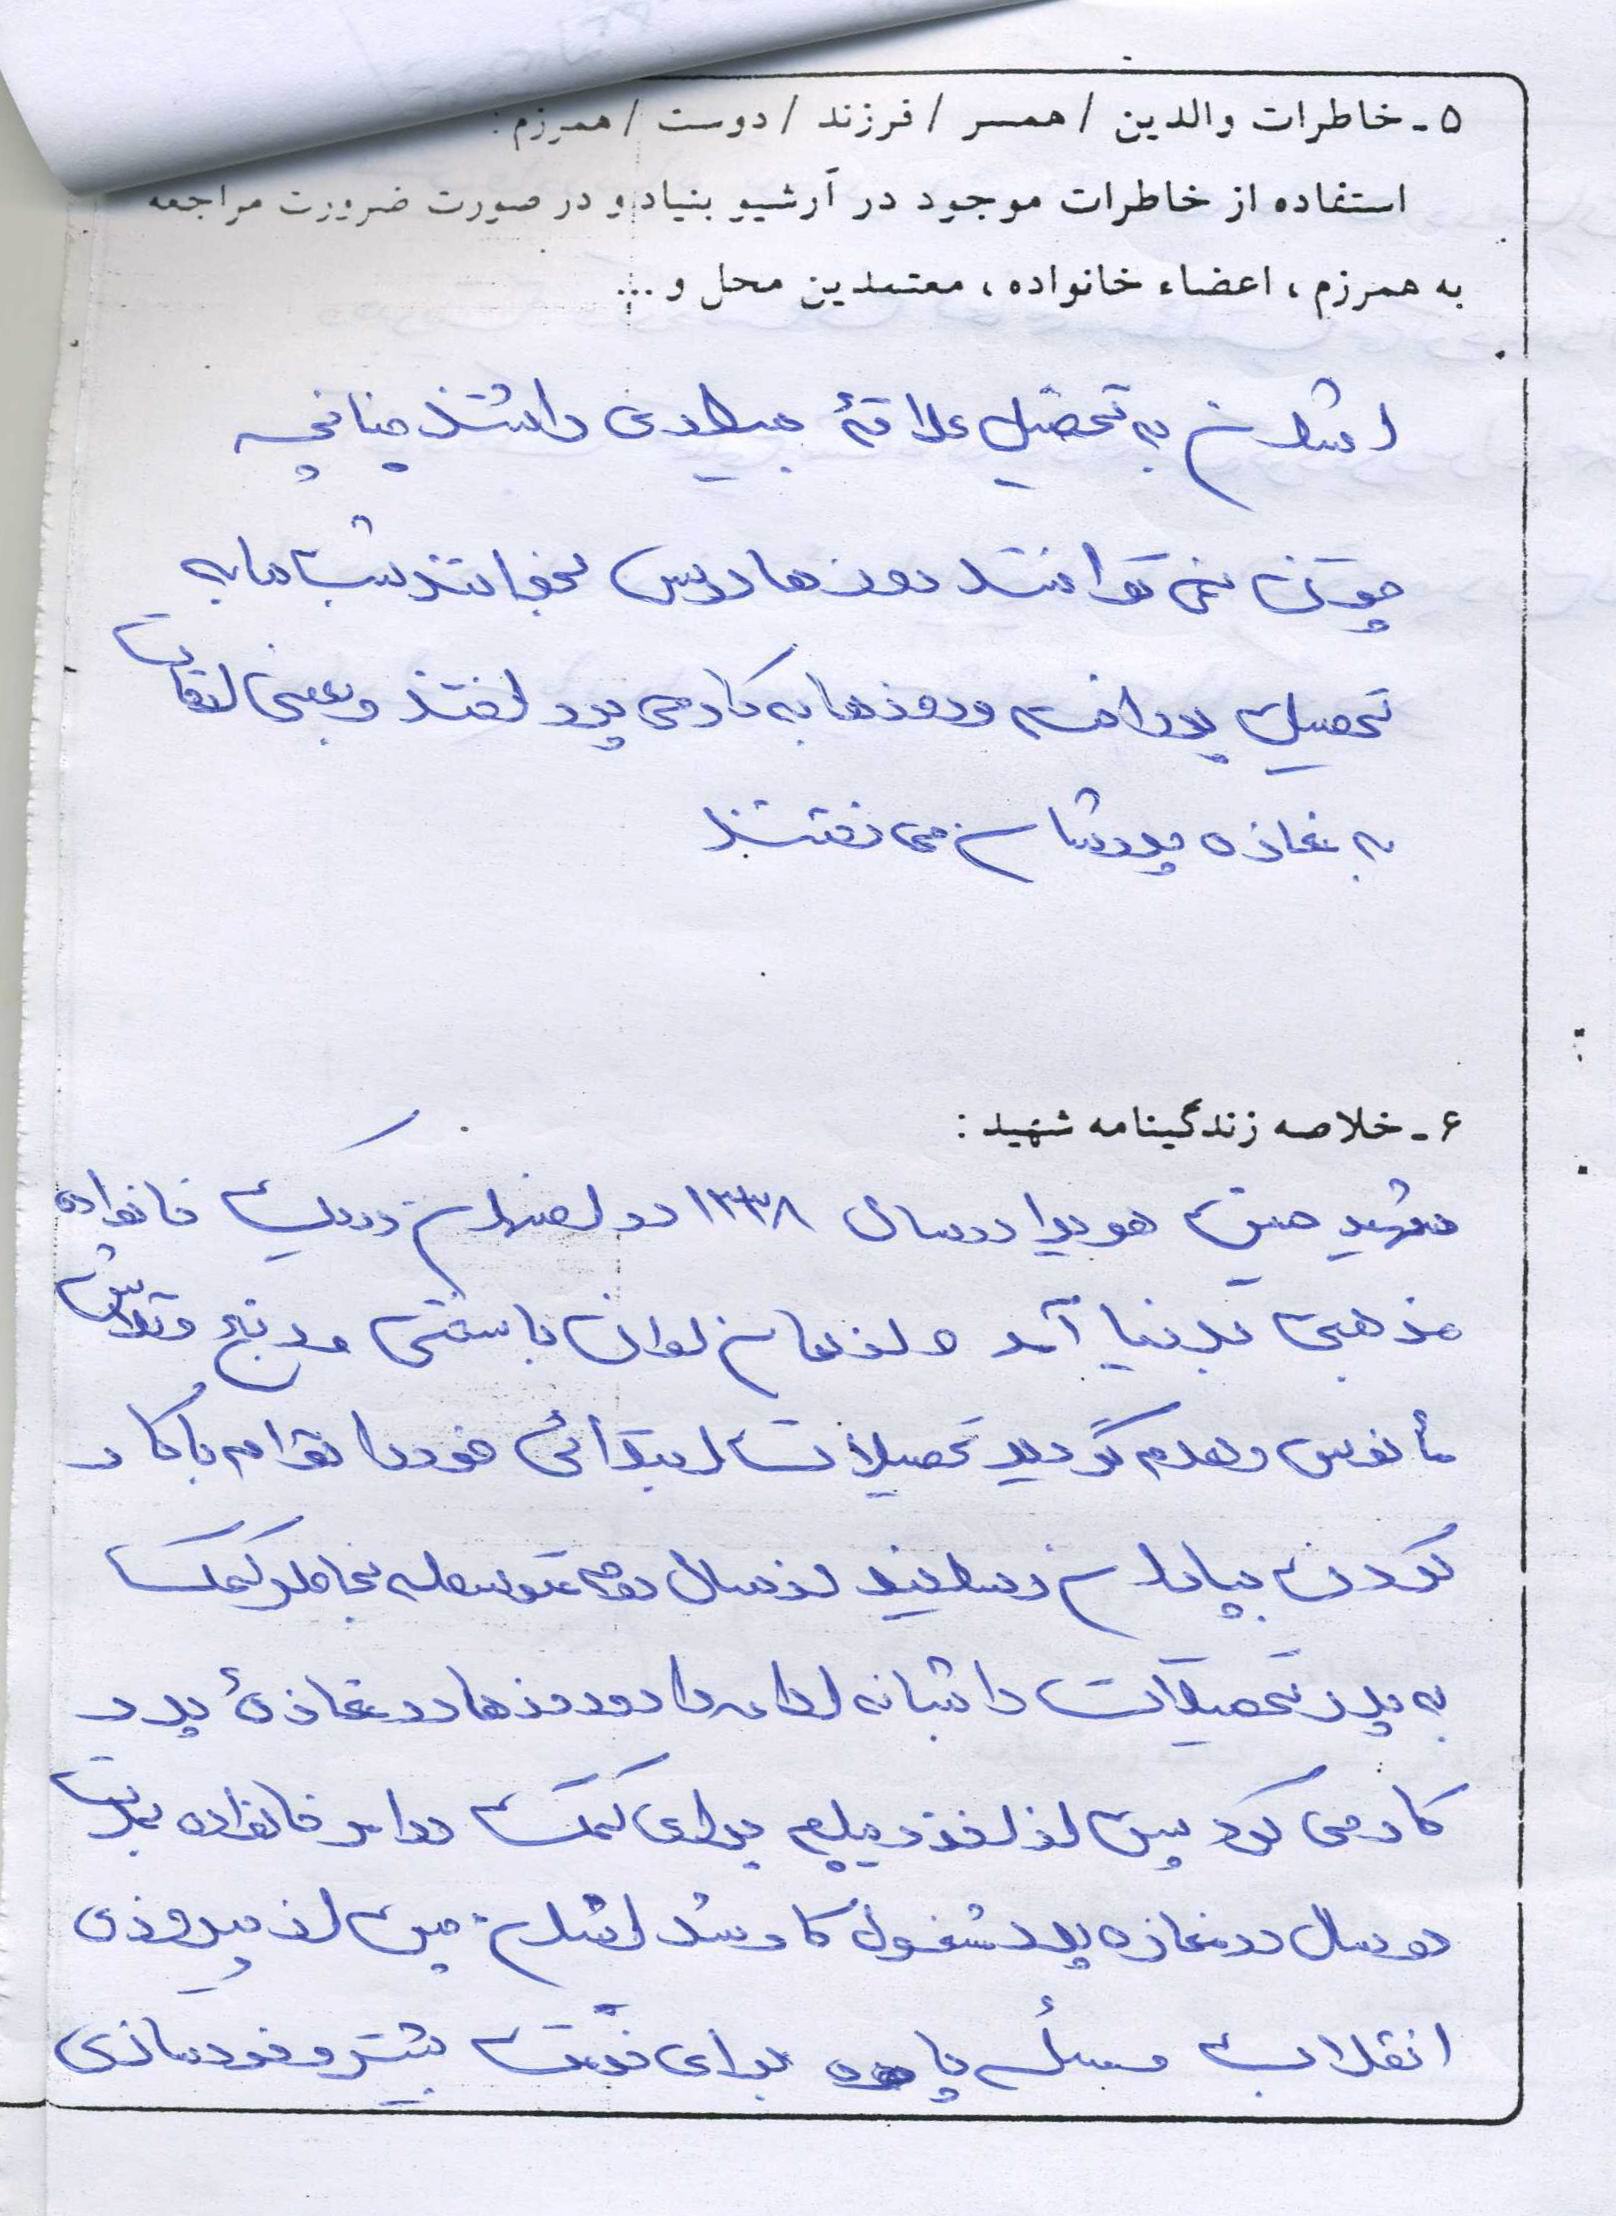 ۵ - خاطرات والدین / همسر / فرزند / دوست / همرزم:
استفاده از خاطرات موجود در آرشیو بنیاد و در صورت ضرورت مراجعه
به همرزم ، اعضاء خانواده ، معتمدین محل و ...
ایشان به تحصیل علاقهٔ بسیاری داشتند چنانچه
چون نمی توانستند روزها درس بخوانند شبها به
تحصیل پرداخته و روزها به کار می پرداختند و بعضی اوقات
به مغازه پدرشان می رفتند
۶ - خلاصه زندگینامه شهید :
شهید حسن هویدا در سال ۱۳۳۸ در اصفهان در یک خانواده
مذهبی بدنیا آمد و از همان اوان با سختی و رنج و تلاش
مأنوس و همدم گردید تحصیلات ابتدائی خود را توام با کار
کردن بپایان رسانید از سال دوم متوسطه بخاطر کمک
به پدر تحصیلات را شبانه ادامه داد و روزها در مغازهٔ پدر
کار می کرد پس از اخذ دیپلم برای کمک درآمد خانواده بمدت
دو سال در مغازه پدر مشغول کار شد ایشان پس از پیروزی
انقلاب و مسأله پاوه برای خدمت بیشتر و خودسازی